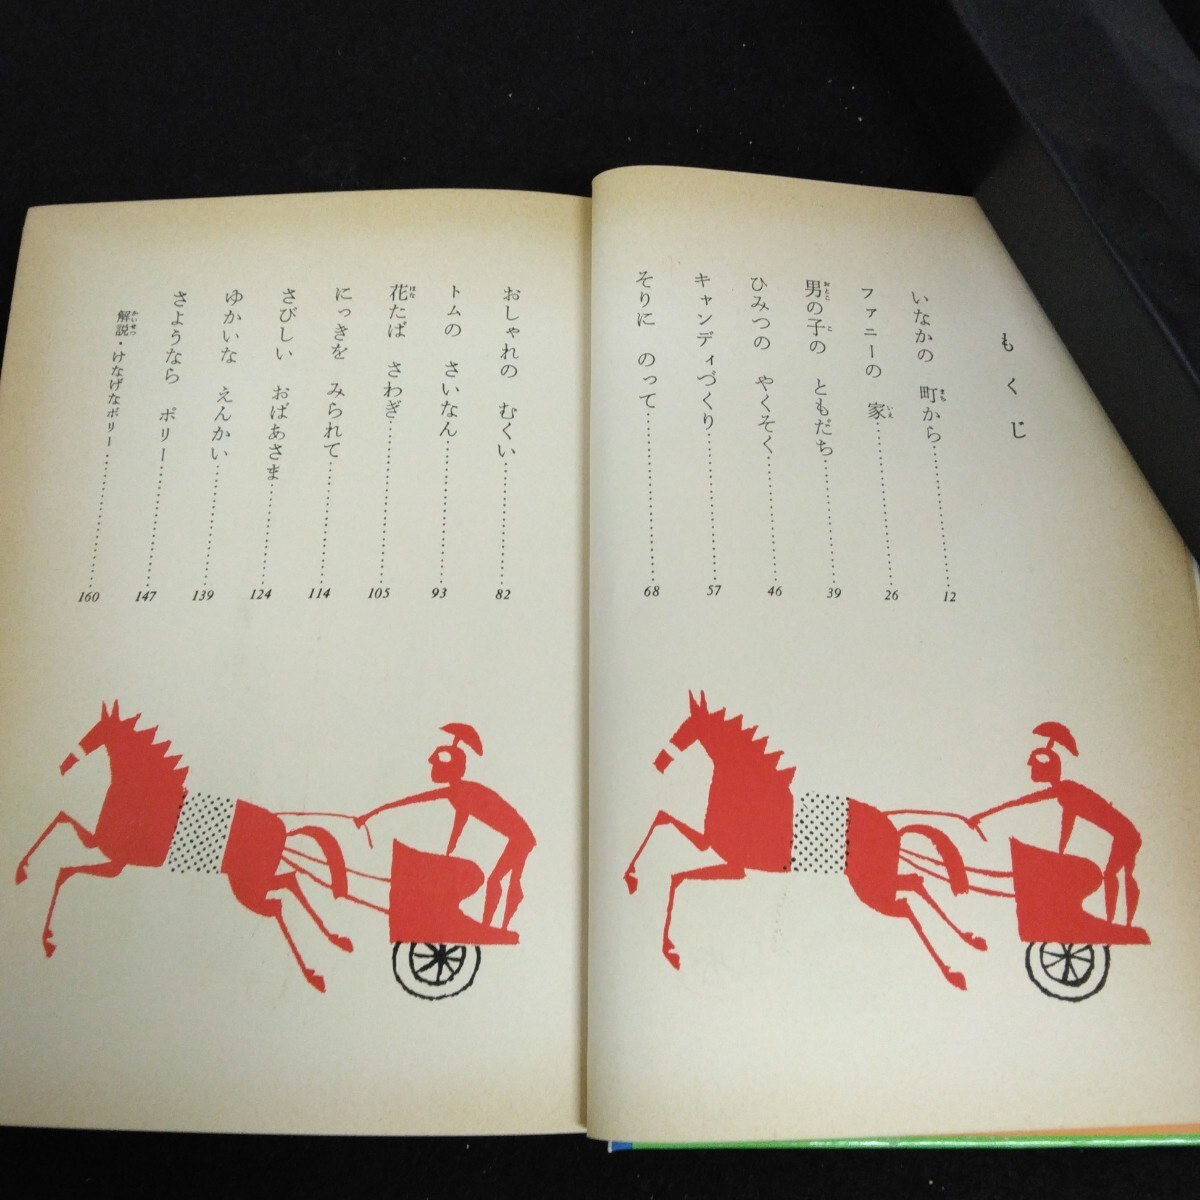 もくじ
いなかの 町から…………12
ファニーの 家…………26
男の子の ともだち…………39
ひみつの やくそく…………46
キャンディづくり…………57
そりに のって…………68
おしゃれの むくい…………82
トムの さいなん…………93
花たば さわぎ…………105
にっきを みられて…………114
さびしい おばあさま…………124
ゆかいな えんかい…………139
さようなら ポリー…………147
解説・けなげなポリー…………160